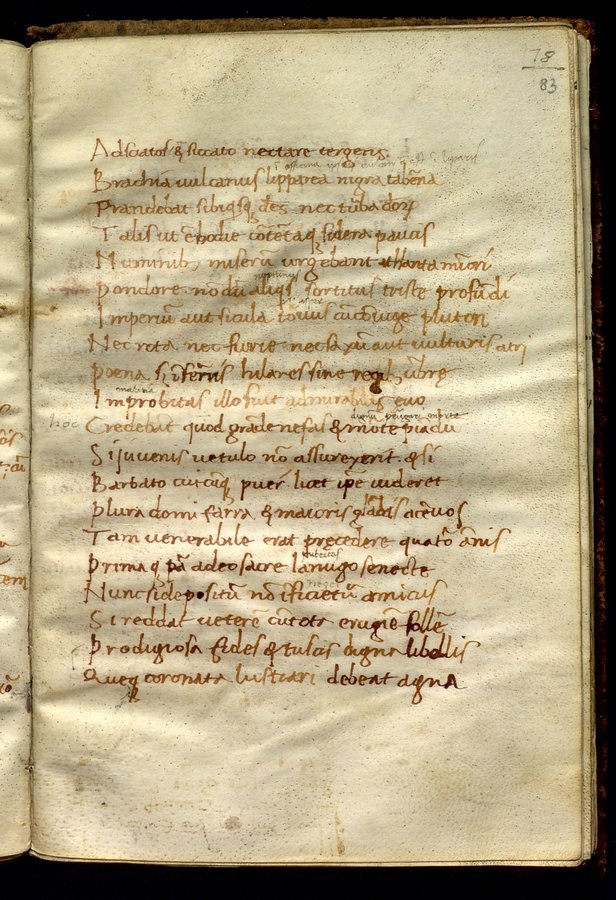 78
83
Ad sciatos & siccato nectare tergens
Brachia uulcanus lipparea nigra taberna
Prandebat sibi quisq; d's nec turba deor
Talis ut ē hodie cōtētaq; sidera paucis
Numinib; miserū urgebant athlanta minori
neptunus
Pondere nōdū aliqs sortitus triste profūdi
Imperiū aut sicula toruus cū cōiuge pluton
Nec rota nec furie nec saxū aut uulturis atri
Poena s; īfernis hilares sine regib; ūbrę
malitia
Improbitas illo fuit admirabilis euo
hoc Credebāt quod grāde nefas & morte piādū
Si juuenis uetulo nō assurexerit & si
Barbato cuicūq; puer licet ipe uideret
Plura domi farra & maioris glādis aceruos
Tam uenerabile erat precedere quatuor annis
iuuentus
Prima q; pā adeo sacre lanugo senecte
Nunc si depositū nō īficietur amicus
Si reddat ueterē cū tota erugine follē
Prodigiosa fides & tuscis digna libellis
Queq; coronata lustrari debeat agna